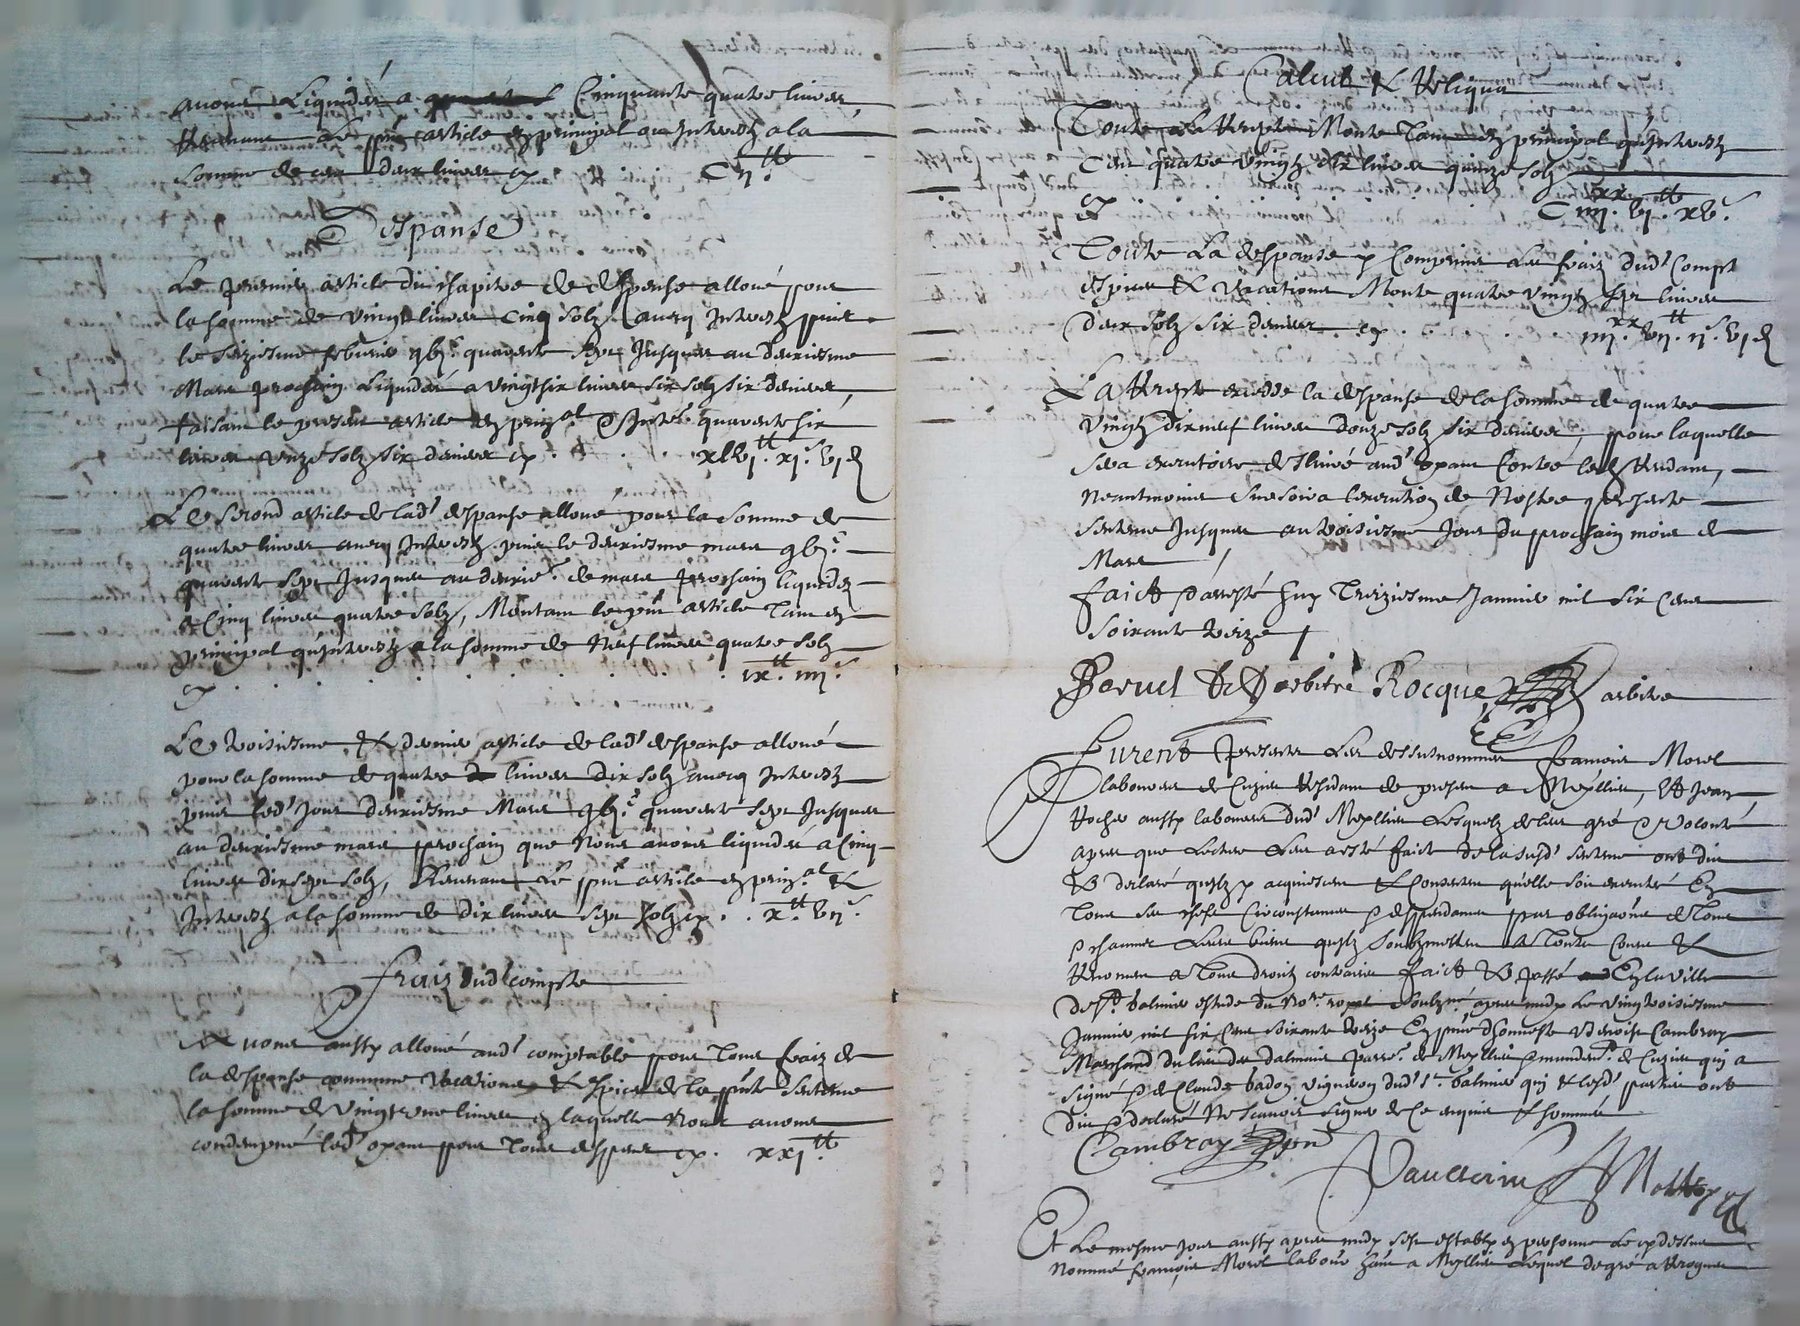 avons Liquidés a Cinquante quatre livres,
Revenant Le pnt article en principal ou Interestz a la
somme de cent deux livres cy Cii.tt
Despanse
Le premier article du chapitre de despense alloué pour
la somme de vingt livres cinq solz avecq Interestz puis
le seiziesme febvrier quarente sept Jusques au deuxiesme
Mars prochain Liquidés a vingtsix livres six solz six deniers,
faisant le present article en prin.al & Inte. quarente six
livres unze solz six deniers cy . . . xlvi.tt xi.s vi d
Le second article de lad. despanse alloué pour la somme de
quatre livres avecq Interestz puis le deuxiesme mars
quarente sept Jusques au deuxie. de mars prochain liquidez
a Cinq livres quatre solz, Montant le pnt article Tant en
principal qu'Interestz a la somme de Neuf livres quatre solz
cy . . . . . . . . . ix.tt iiii.s
Le troisiesme & dernier article de lad. despanse alloué
pour la somme de quatre livres dix solz avecq Interestz
puis led. Jour deuxiesme Mars quarente sept Jusques
au deuxiesme mars prochain que Nous avons liquidés a Cinq
livres dix sept solz, Revenant Le pnt article en prin.al &
Interestz a la somme de dix livres sept solz cy . . x.tt vii.s
fraiz dud. compte
Avons aussy alloué aud. comptable pour Tous fraiz de
la despense commune vacations & espices de la pnte sentence
la somme de vingt une livres en laquelle Nous avons
condempné led. oyant pour tous despens cy . xxi.tt
Calcul & Reliqua
Toute La Recepte Monte Tant en principal qu'Interestz
Cent quatre vingtz six livres quinze solz
cy . . . . C iiii.xx vi.tt xv.s
Toute La despanse y Comprins Les fraiz dud. Compt
espices & vacations Monte quatre vingtz sept livres
deux solz six deniers cy . . . iiii.xx vii.tt ii.s vi d
La Recepte excede la despanse de la somme de quatre
vingtz dix neuf livres douze solz six deniers, pour laquelle
sera executoire deslivré aud. oyant Contre led. Rendant,
Neantmoings sursoira l'execution de Nostre presente
sentence Jusques au troisiesme Jour du prochain mois de
Mars
faict & arresté ce Treiziesme Janvier mil six Cens
soixante treize
arbitre Rocque arbitre
Furent presents Les dessusnommes françois Morel
laboureur de Cuzieu Residant de present a Meyllieu, Et Jean
Rocher aussy laboureur dud. Meyllieu Lesquelz de leur gré & volonté
apres que Lecture Leur a esté faict de la susd. sentence ont dict
Et declaré qu'ilz y acquiescent & Consentent qu'elle soit executé En
Tous ses chefz Circonstances & despendances par obligaõns de Tous
& chascuns Leurs biens qu'ilz soubzmettent A Toutes Cours &
Renoncent A Tous droitz contraires faict Et passé En la ville
de St. Galmier estude du Nore. royal soubzné. apres midy Le vingt troisiesme
Janvier mil six Cens soixante treize En pnce d'honneste Cambray
Marchand du lieu de parre. de Meyllieu & de Cuzieu qui a
signé & de Claude badon vigneron dud. St. Galmier qui & lesd. parties ont
dict & declaré Ne scavoir signer de ce enquis & sommés
Cambray pnt
Et Le mesme Jour aussy apres midy s'est estably en personne Le cy dessus
Nommé françois Morel laboure. hant. a Meyllieu Lequel de gré a Recogneu